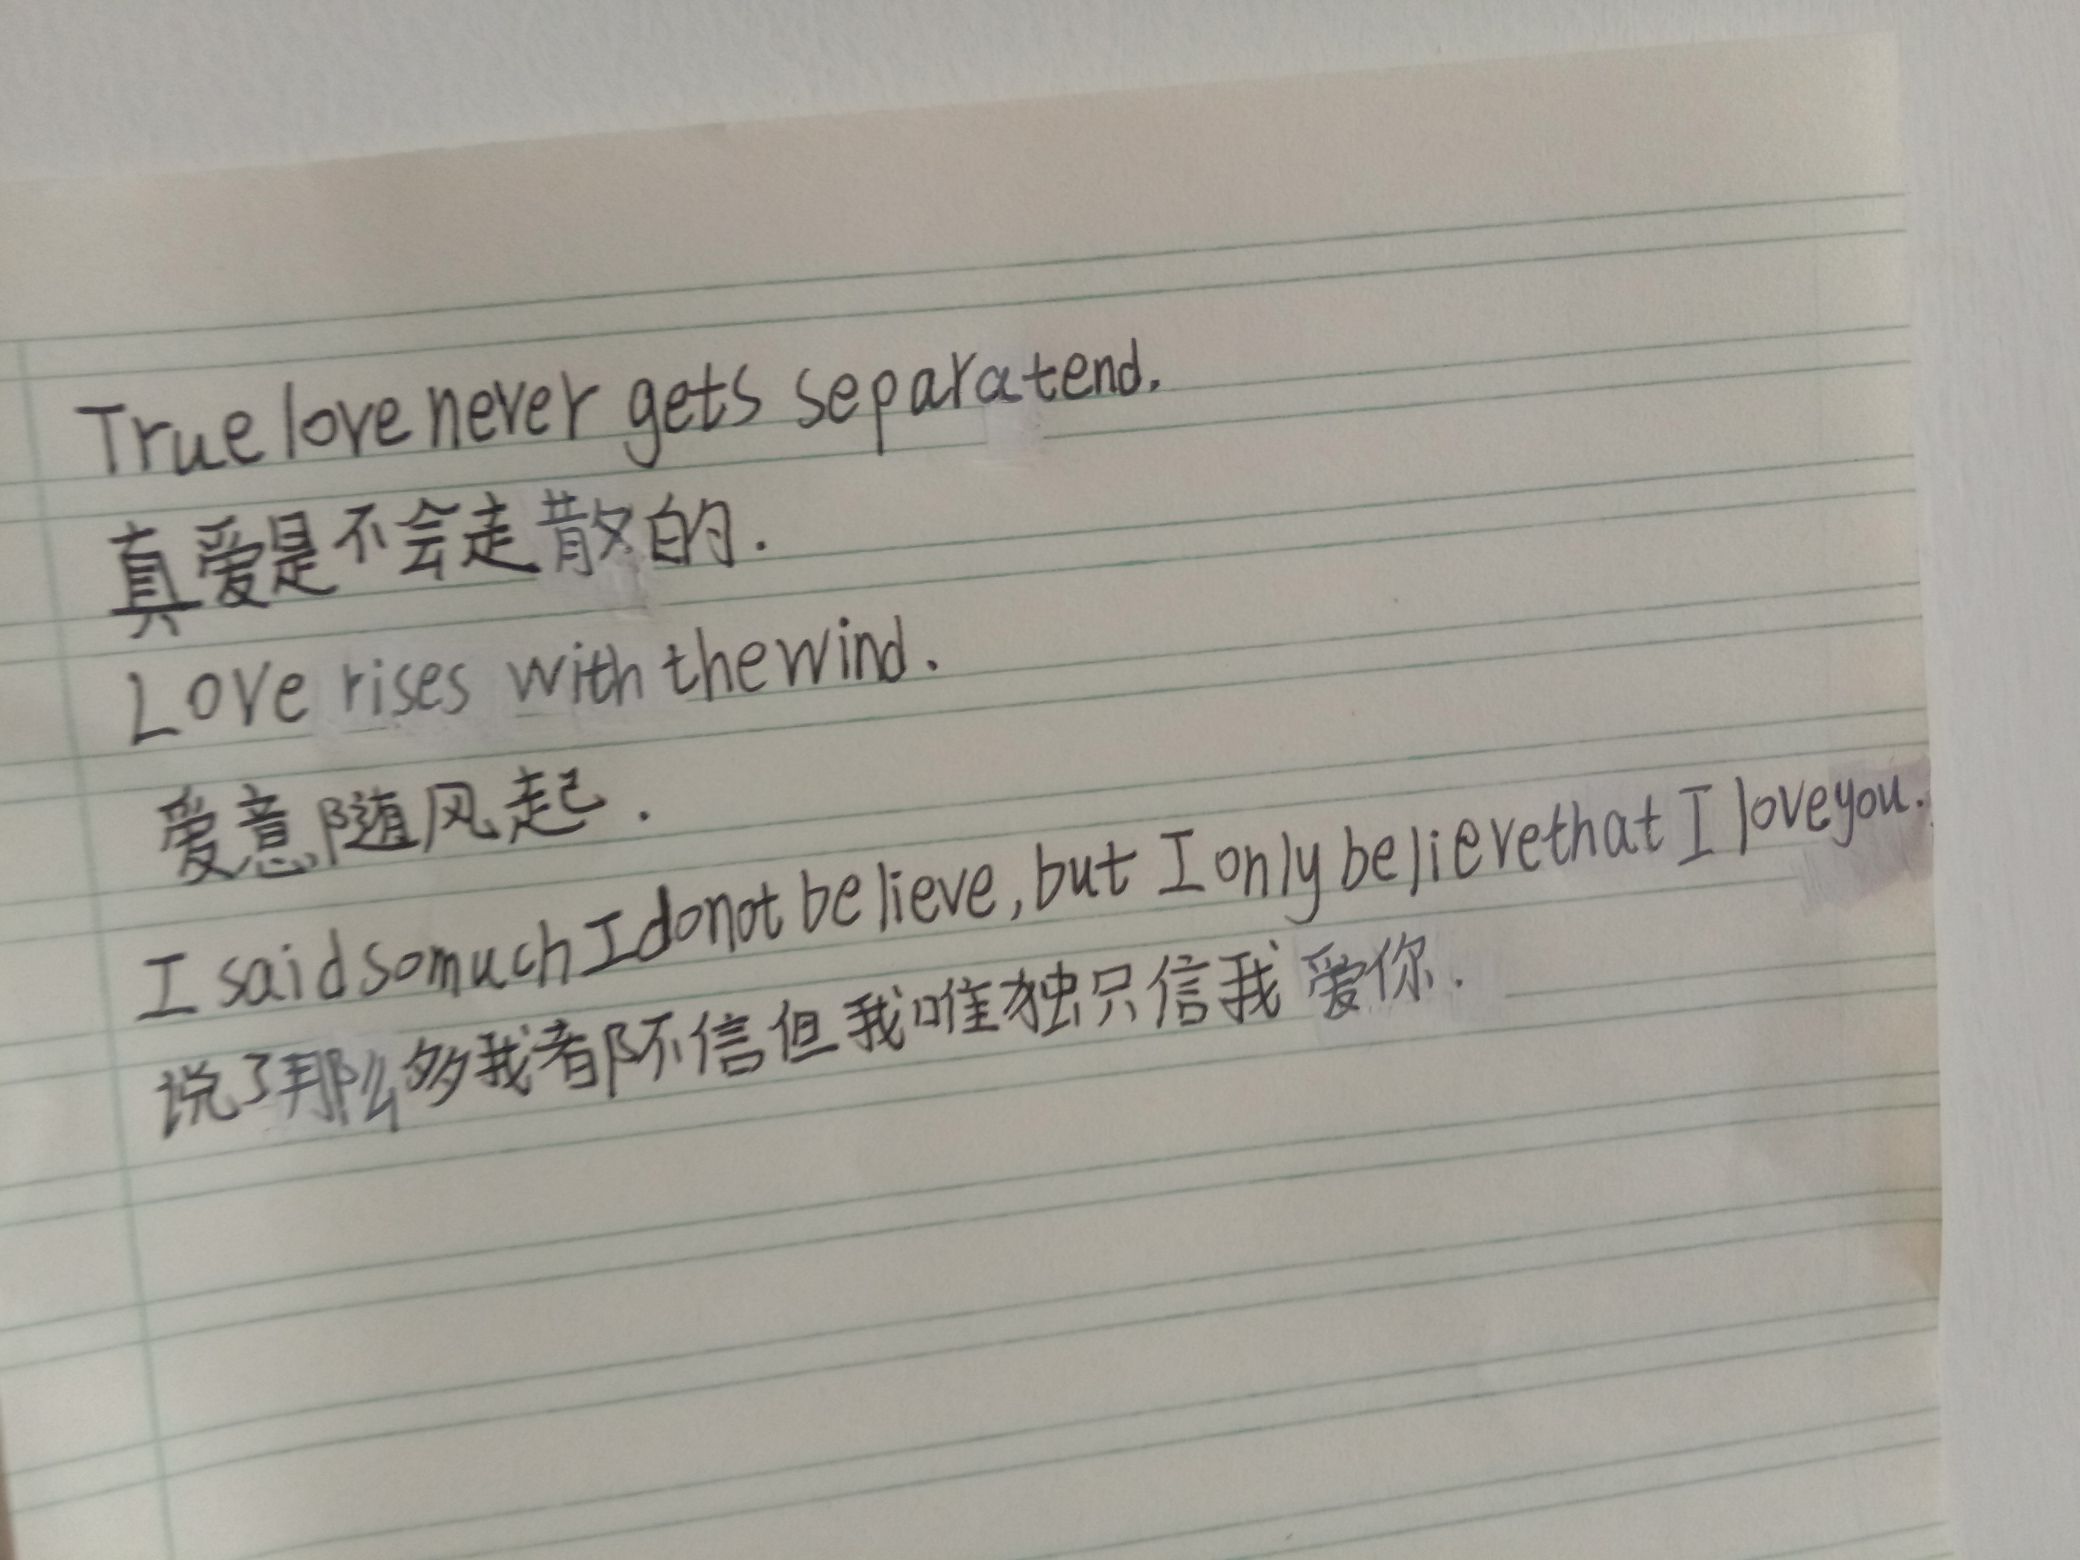 True love never gets separatend.
真爱是不会走散的.
Love rises with the wind.
爱意随风起.
I said so much I do not believe, but I only believe that I love you.
说了那么多我都不信但我唯独只信我爱你.